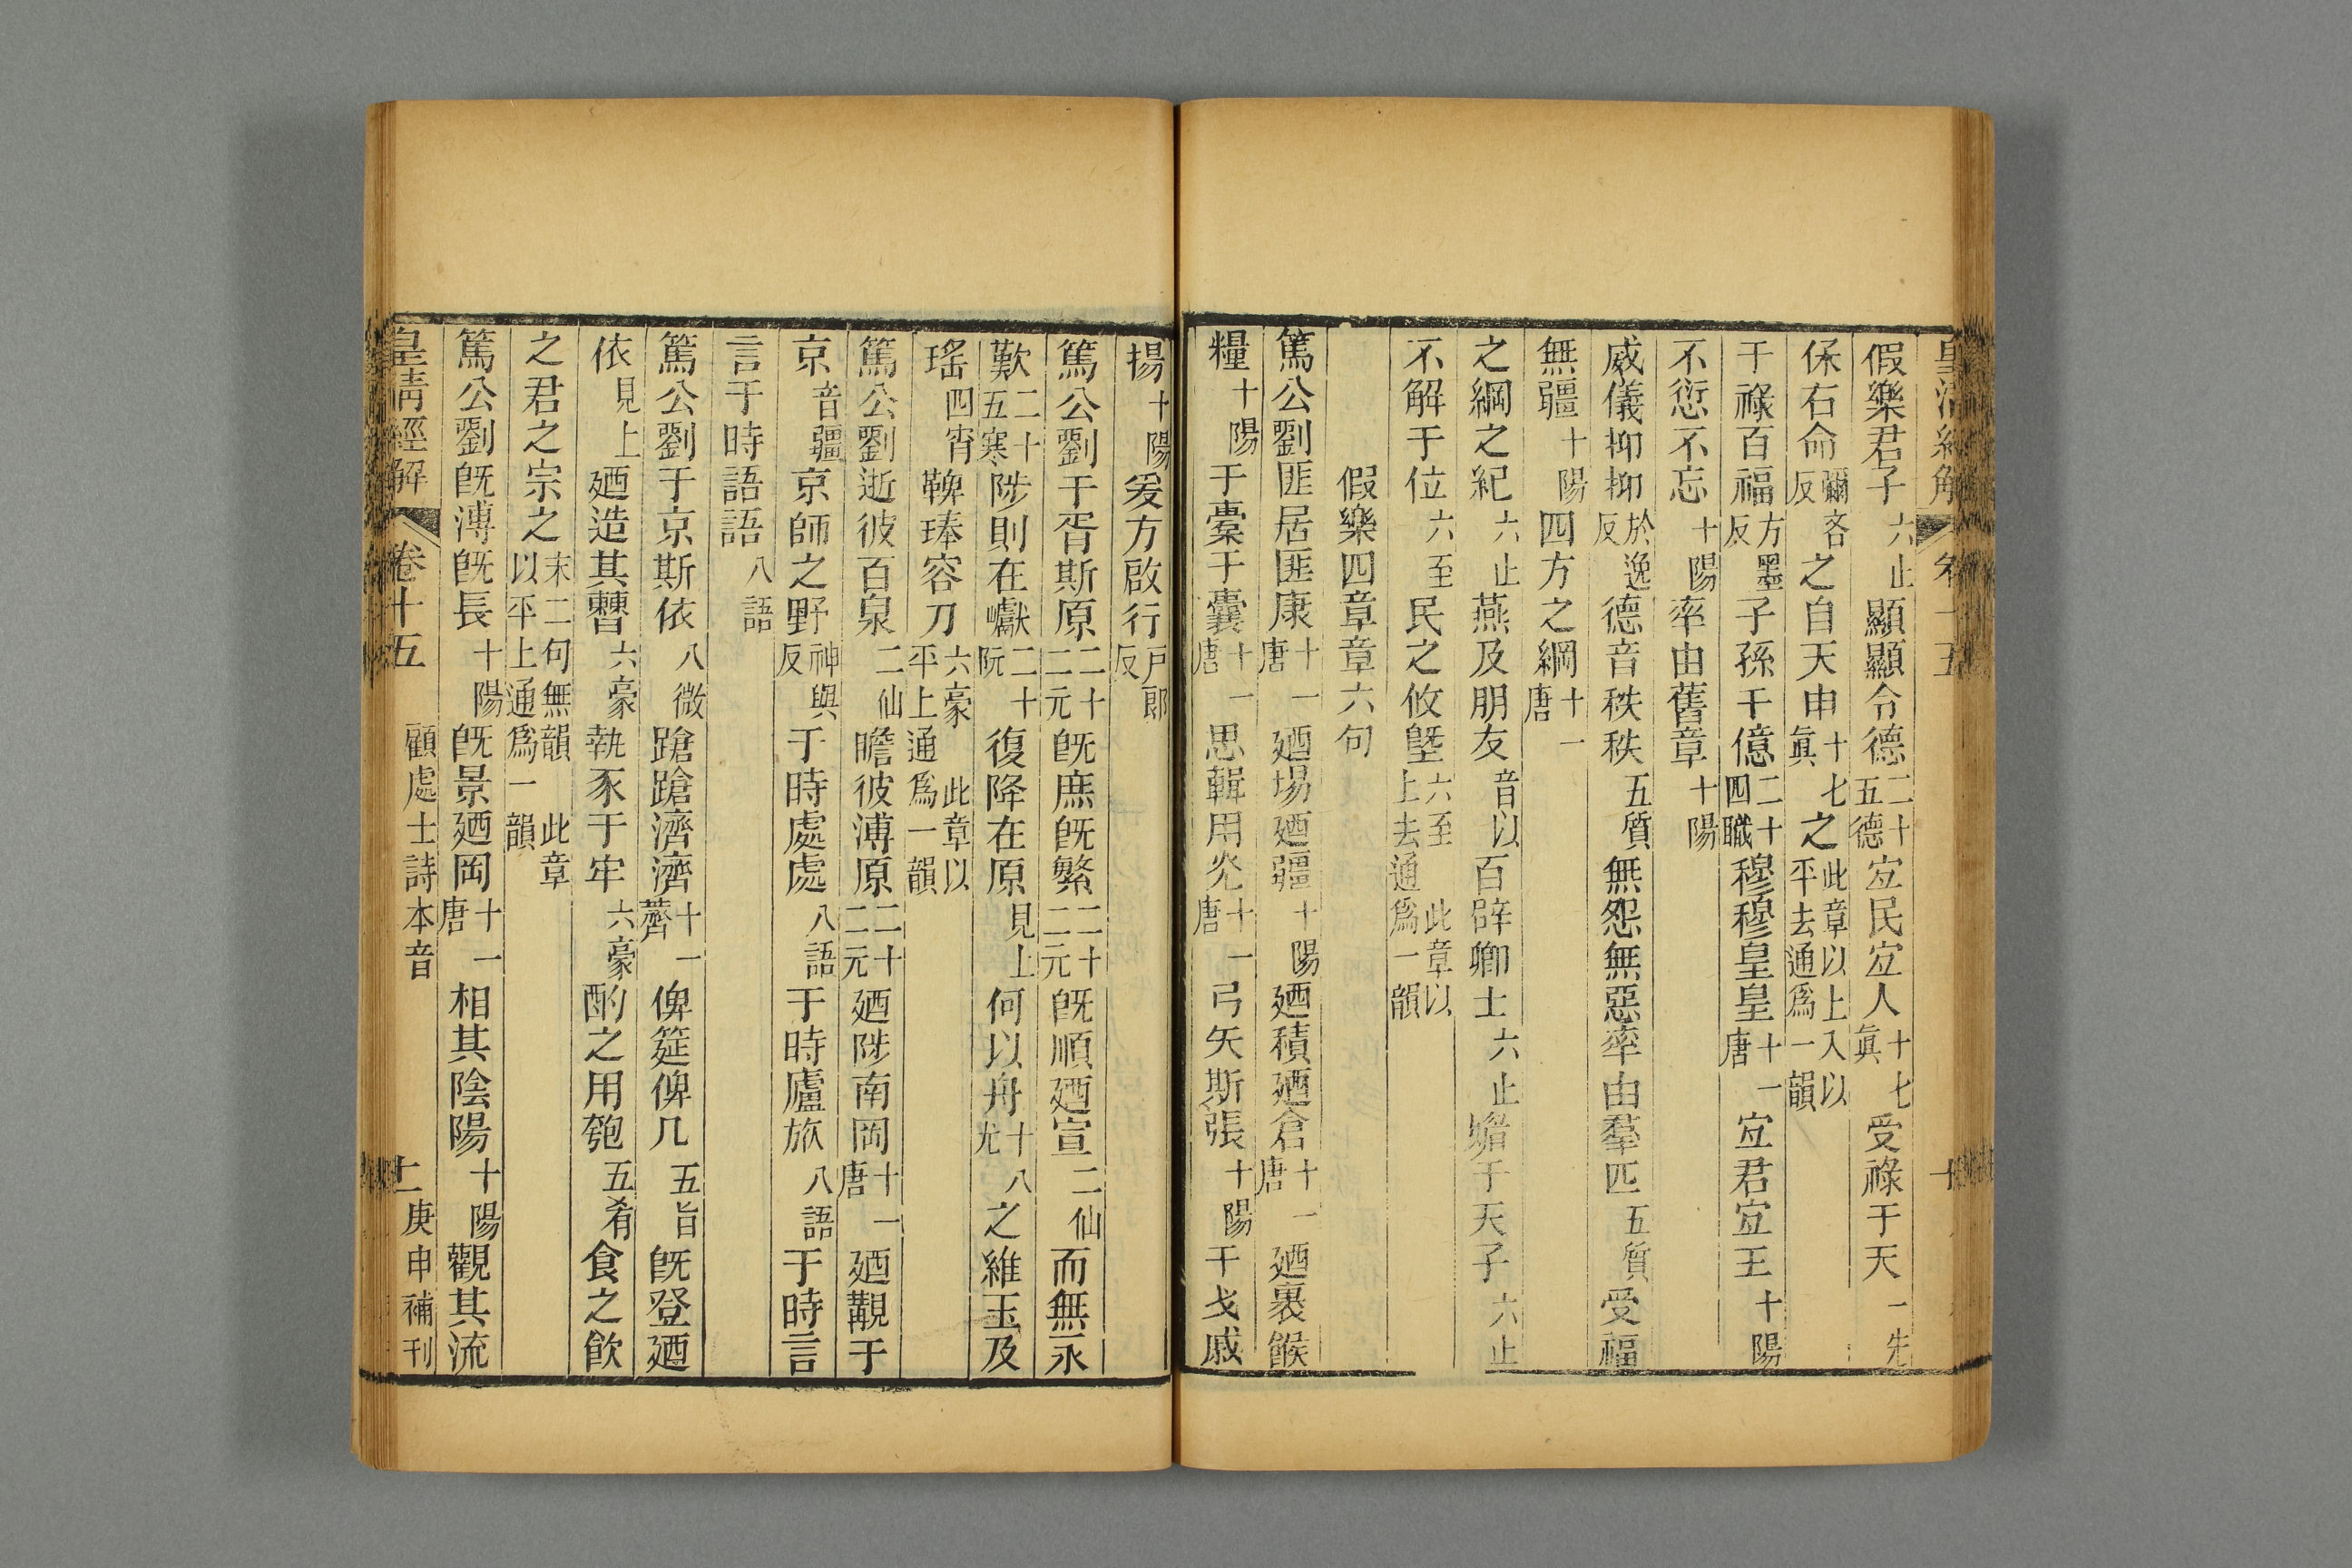 皇清經解 卷十五 十
假樂君子六止顯顯令德二十五德宜民宜人十七眞受祿于天一先
保右命彌吝反之自天申十七眞之此章以上入以平去通爲一韻
干祿百福方墨反子孫千億二十四職穆穆皇皇十一唐宜君宜王十陽
不愆不忘十陽率由舊章十陽
威儀抑抑於逸反德音秩秩五質無怨無惡率由羣匹五質受福
無疆十陽四方之綱十一唐
之綱之紀六止燕及朋友音以百辟卿士六止媚于天子六止
不解于位六至民之攸塈六至此章以上去通爲一韻
假樂四章章六句
篤公劉匪居匪康十一唐廼埸廼疆十陽廼積廼倉十一唐廼裹餱
糧十陽于橐于囊十一唐思輯用光十一唐弓矢斯張十陽干戈戚
揚十陽爰方啟行戸郎反
篤公劉于胥斯原二十二元旣庶旣繁二十二元旣順廼宣二仙而無永
歎二十五寒陟則在巘二十阮復降在原見上何以舟十八尤之維玉及
瑤四宵鞞琫容刀六豪此章以平上通爲一韻
篤公劉逝彼百泉二仙瞻彼溥原二十二元廼陟南岡十一唐廼覯于
京音疆京師之野神與反于時處處八語于時廬旅八語于時言
言于時語語八語
篤公劉于京斯依八微蹌蹌濟濟十一薺俾筵俾几五旨旣登廼
依見上廼造其曹六豪執豕于牢六豪酌之用匏五肴食之飲
之君之宗之末二句無韻此章以平上通爲一韻
篤公劉旣溥旣長十陽旣景廼岡十一唐相其陰陽十陽觀其流
皇清經解 卷十五 顧處士詩本音 十一 庚申補刊